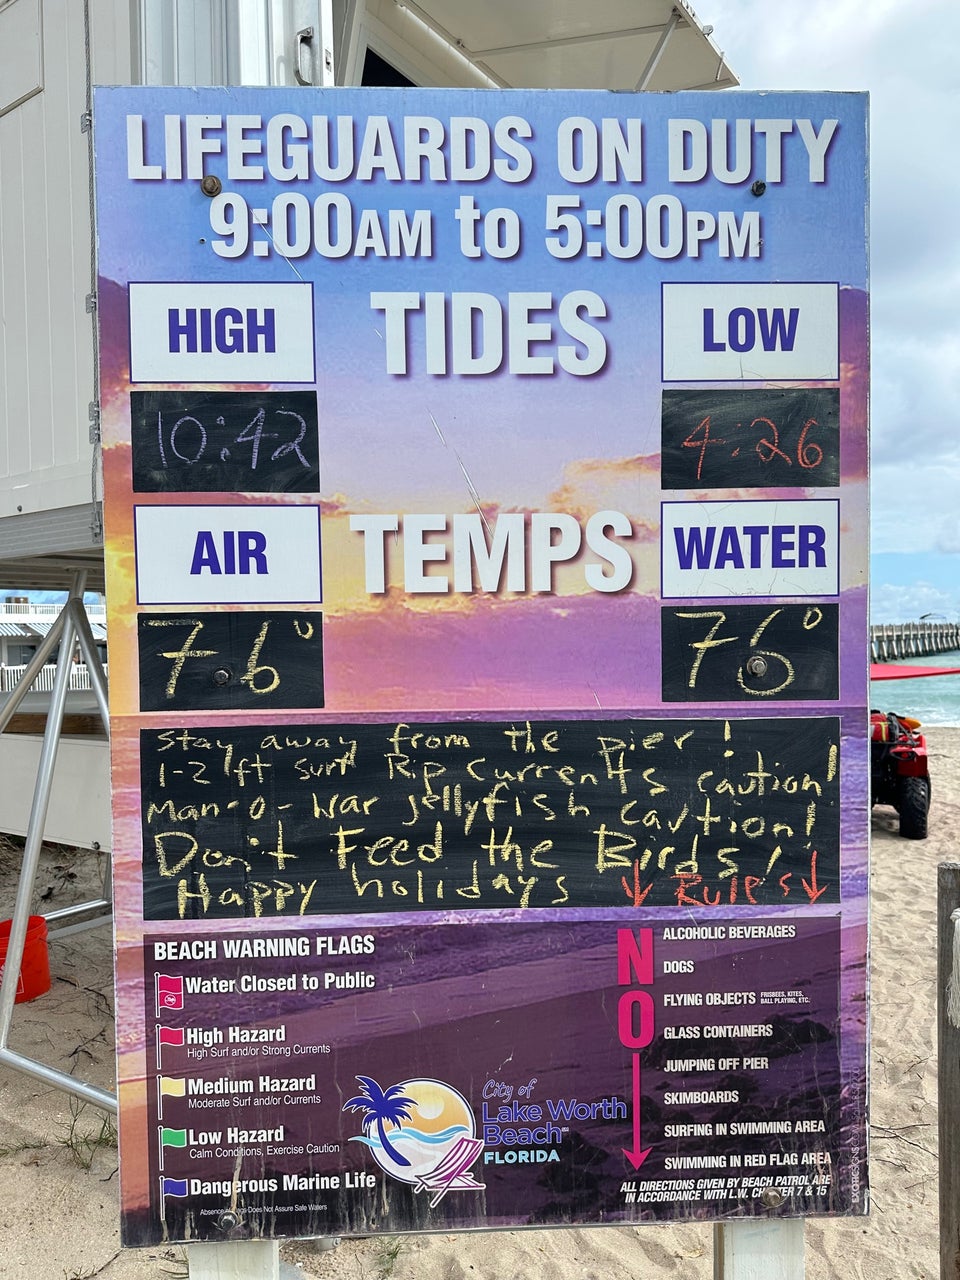 LIFEGUARDS ON DUTY
9:00AM to 5:00PM
HIGH TIDES LOW
10:42 4:26
AIR TEMPS WATER
76° 76°
stay away from the pier!
1-2 ft surf Rip currents caution!
man-o-war jellyfish caution!
Don't Feed the Birds!
Happy holidays ↓ Rule's ↓
BEACH WARNING FLAGS
Water Closed to Public
High Hazard
High Surf and/or Strong Currents
Medium Hazard
Moderate Surf and/or Currents
Low Hazard
Calm Conditions, Exercise Caution
Dangerous Marine Life
Absence of Flags Does Not Assure Safe Waters
City of
Lake Worth
Beach
FLORIDA
NO
ALCOHOLIC BEVERAGES
DOGS
FLYING OBJECTS FRISBEES, KITES,
BALL PLAYING, ETC.
GLASS CONTAINERS
JUMPING OFF PIER
SKIMBOARDS
SURFING IN SWIMMING AREA
SWIMMING IN RED FLAG AREA
ALL DIRECTIONS GIVEN BY BEACH PATROL ARE
IN ACCORDANCE WITH L.W. CHAPTER 7 & 15